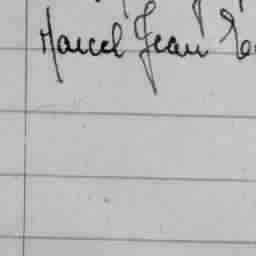 Marcel Jean